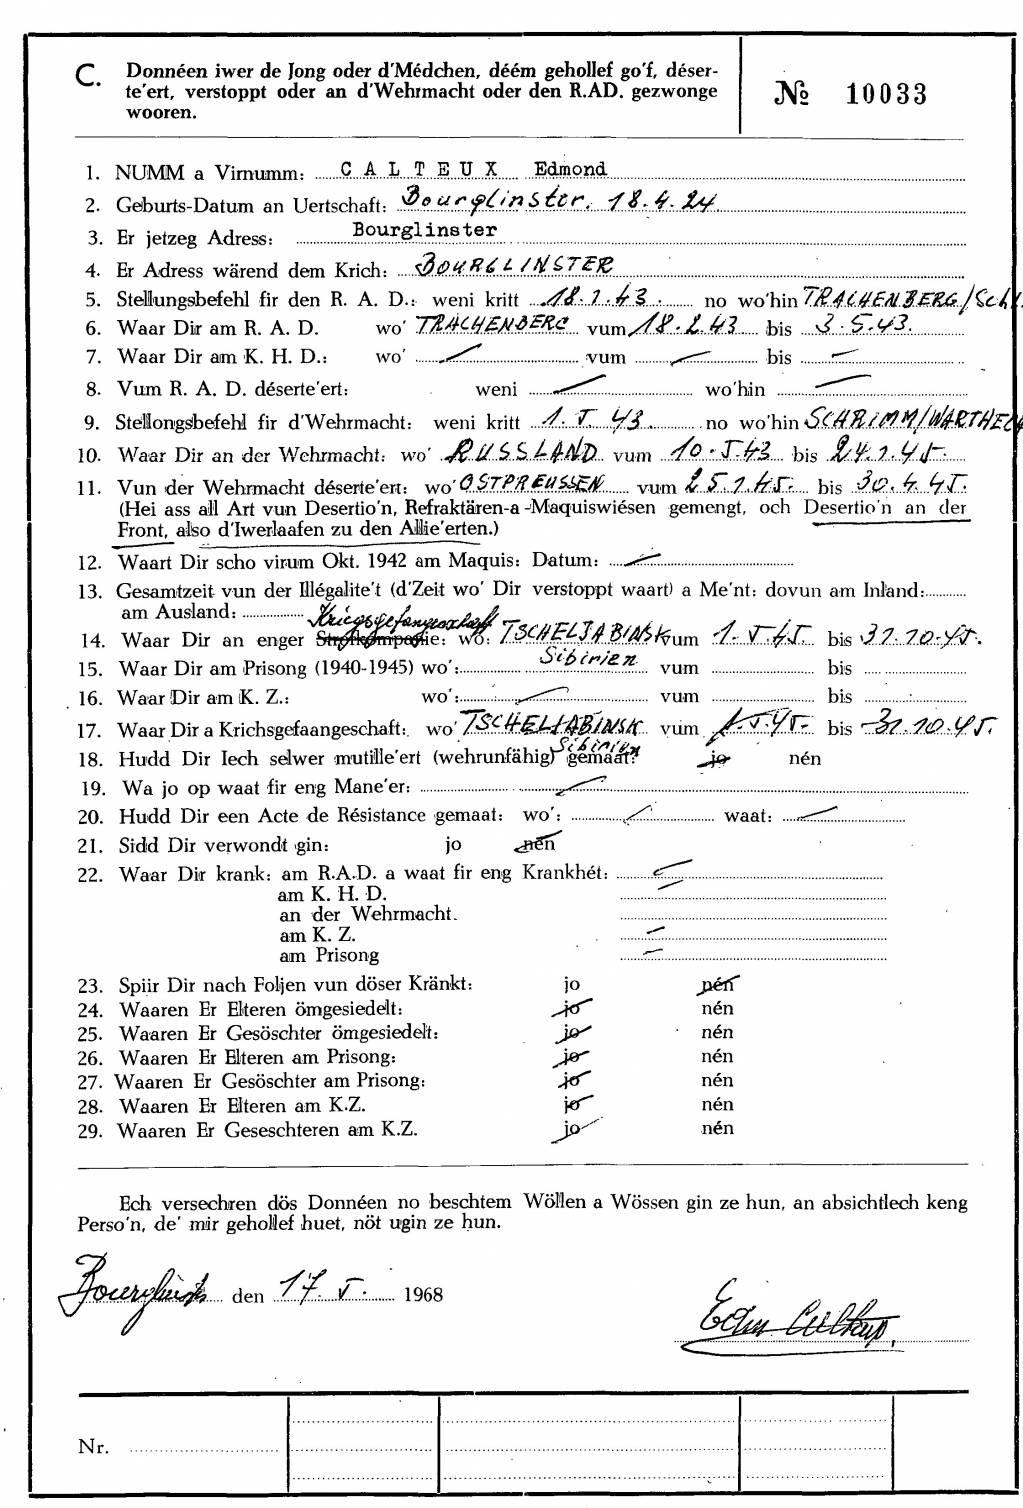 C. Donnéen iwer de Jong oder d'Médchen, déém gehollef go'f, déser-
te'ert, verstoppt oder an d'Wehrmacht oder den R.AD. gezwonge
wooren.
№ 10033
1. NUMM a Virnumm: CALTEUX Edmond
2. Geburts-Datum an Uertschaft: Bourglinster, 18.4.24
3. Er jetzeg Adress: Bourglinster
4. Er Adress wärend dem Krich: BOURGLINSTER
5. Stellungsbefehl fir den R. A. D.: weni kritt 18.1.43. no wo'hin TRACHENBERG/Schl.
6. Waar Dir am R. A. D. wo' TRACHENBERG vum 18.2.43 bis 3.5.43.
7. Waar Dir am K. H. D.: wo' — vum — bis —
8. Vum R. A. D. déserte'ert: weni — wo'hin —
9. Stellongsbefehl fir d'Wehrmacht: weni kritt 1.V.43. no wo'hin SCHRIMM/WARTHEG
10. Waar Dir an der Wehrmacht: wo' RUSSLAND vum 10.5.43 bis 24.1.45.
11. Vun der Wehrmacht déserte'ert: wo' OSTPREUSSEN vum 25.1.45. bis 30.4.45.
(Hei ass all Art vun Desertio'n, Refraktären-a-Maquiswiésen gemengt, och Desertio'n an der
Front, also d'Iwerlaafen zu den Allie'erten.)
12. Waart Dir scho virum Okt. 1942 am Maquis: Datum: —
13. Gesamtzeit vun der Illégalite't (d'Zeit wo' Dir verstoppt waart) a Me'nt: dovun am Inland:
am Ausland:
Kriegsgefangenschaft
14. Waar Dir an enger Strofkompagnie: wo: TSCHELJABINSK vum 1.V.45. bis 31.10.45.
Sibirien
15. Waar Dir am Prisong (1940-1945) wo': vum bis
16. Waar Dir am K. Z.: wo': — vum bis
17. Waar Dir a Krichsgefaangeschaft: wo' TSCHELJABINSK vum 1.5.45. bis 31.10.45.
Sibirien
18. Hudd Dir Iech selwer mutille'ert (wehrunfähig) gemaat? jo nén
19. Wa jo op waat fir eng Mane'er: —
20. Hudd Dir een Acte de Résistance gemaat: wo': — waat: —
21. Sidd Dir verwondt gin: jo nén
22. Waar Dir krank: am R.A.D. a waat fir eng Krankhét: —
am K. H. D. —
an der Wehrmacht.
am K. Z. —
am Prisong —
23. Spiir Dir nach Foljen vun döser Kränkt: jo nén
24. Waaren Er Elteren ömgesiedelt: jo nén
25. Waaren Er Gesöschter ömgesiedelt: jo nén
26. Waaren Er Elteren am Prisong: jo nén
27. Waaren Er Gesöschter am Prisong: jo nén
28. Waaren Er Elteren am K.Z. jo nén
29. Waaren Er Geseschteren am K.Z. jo nén
Ech versechren dös Donnéen no beschtem Wöllen a Wössen gin ze hun, an absichtlech keng
Perso'n, de' mir gehollef huet, nöt ugin ze hun.
Bourglinster den 17.V. 1968
Nr.